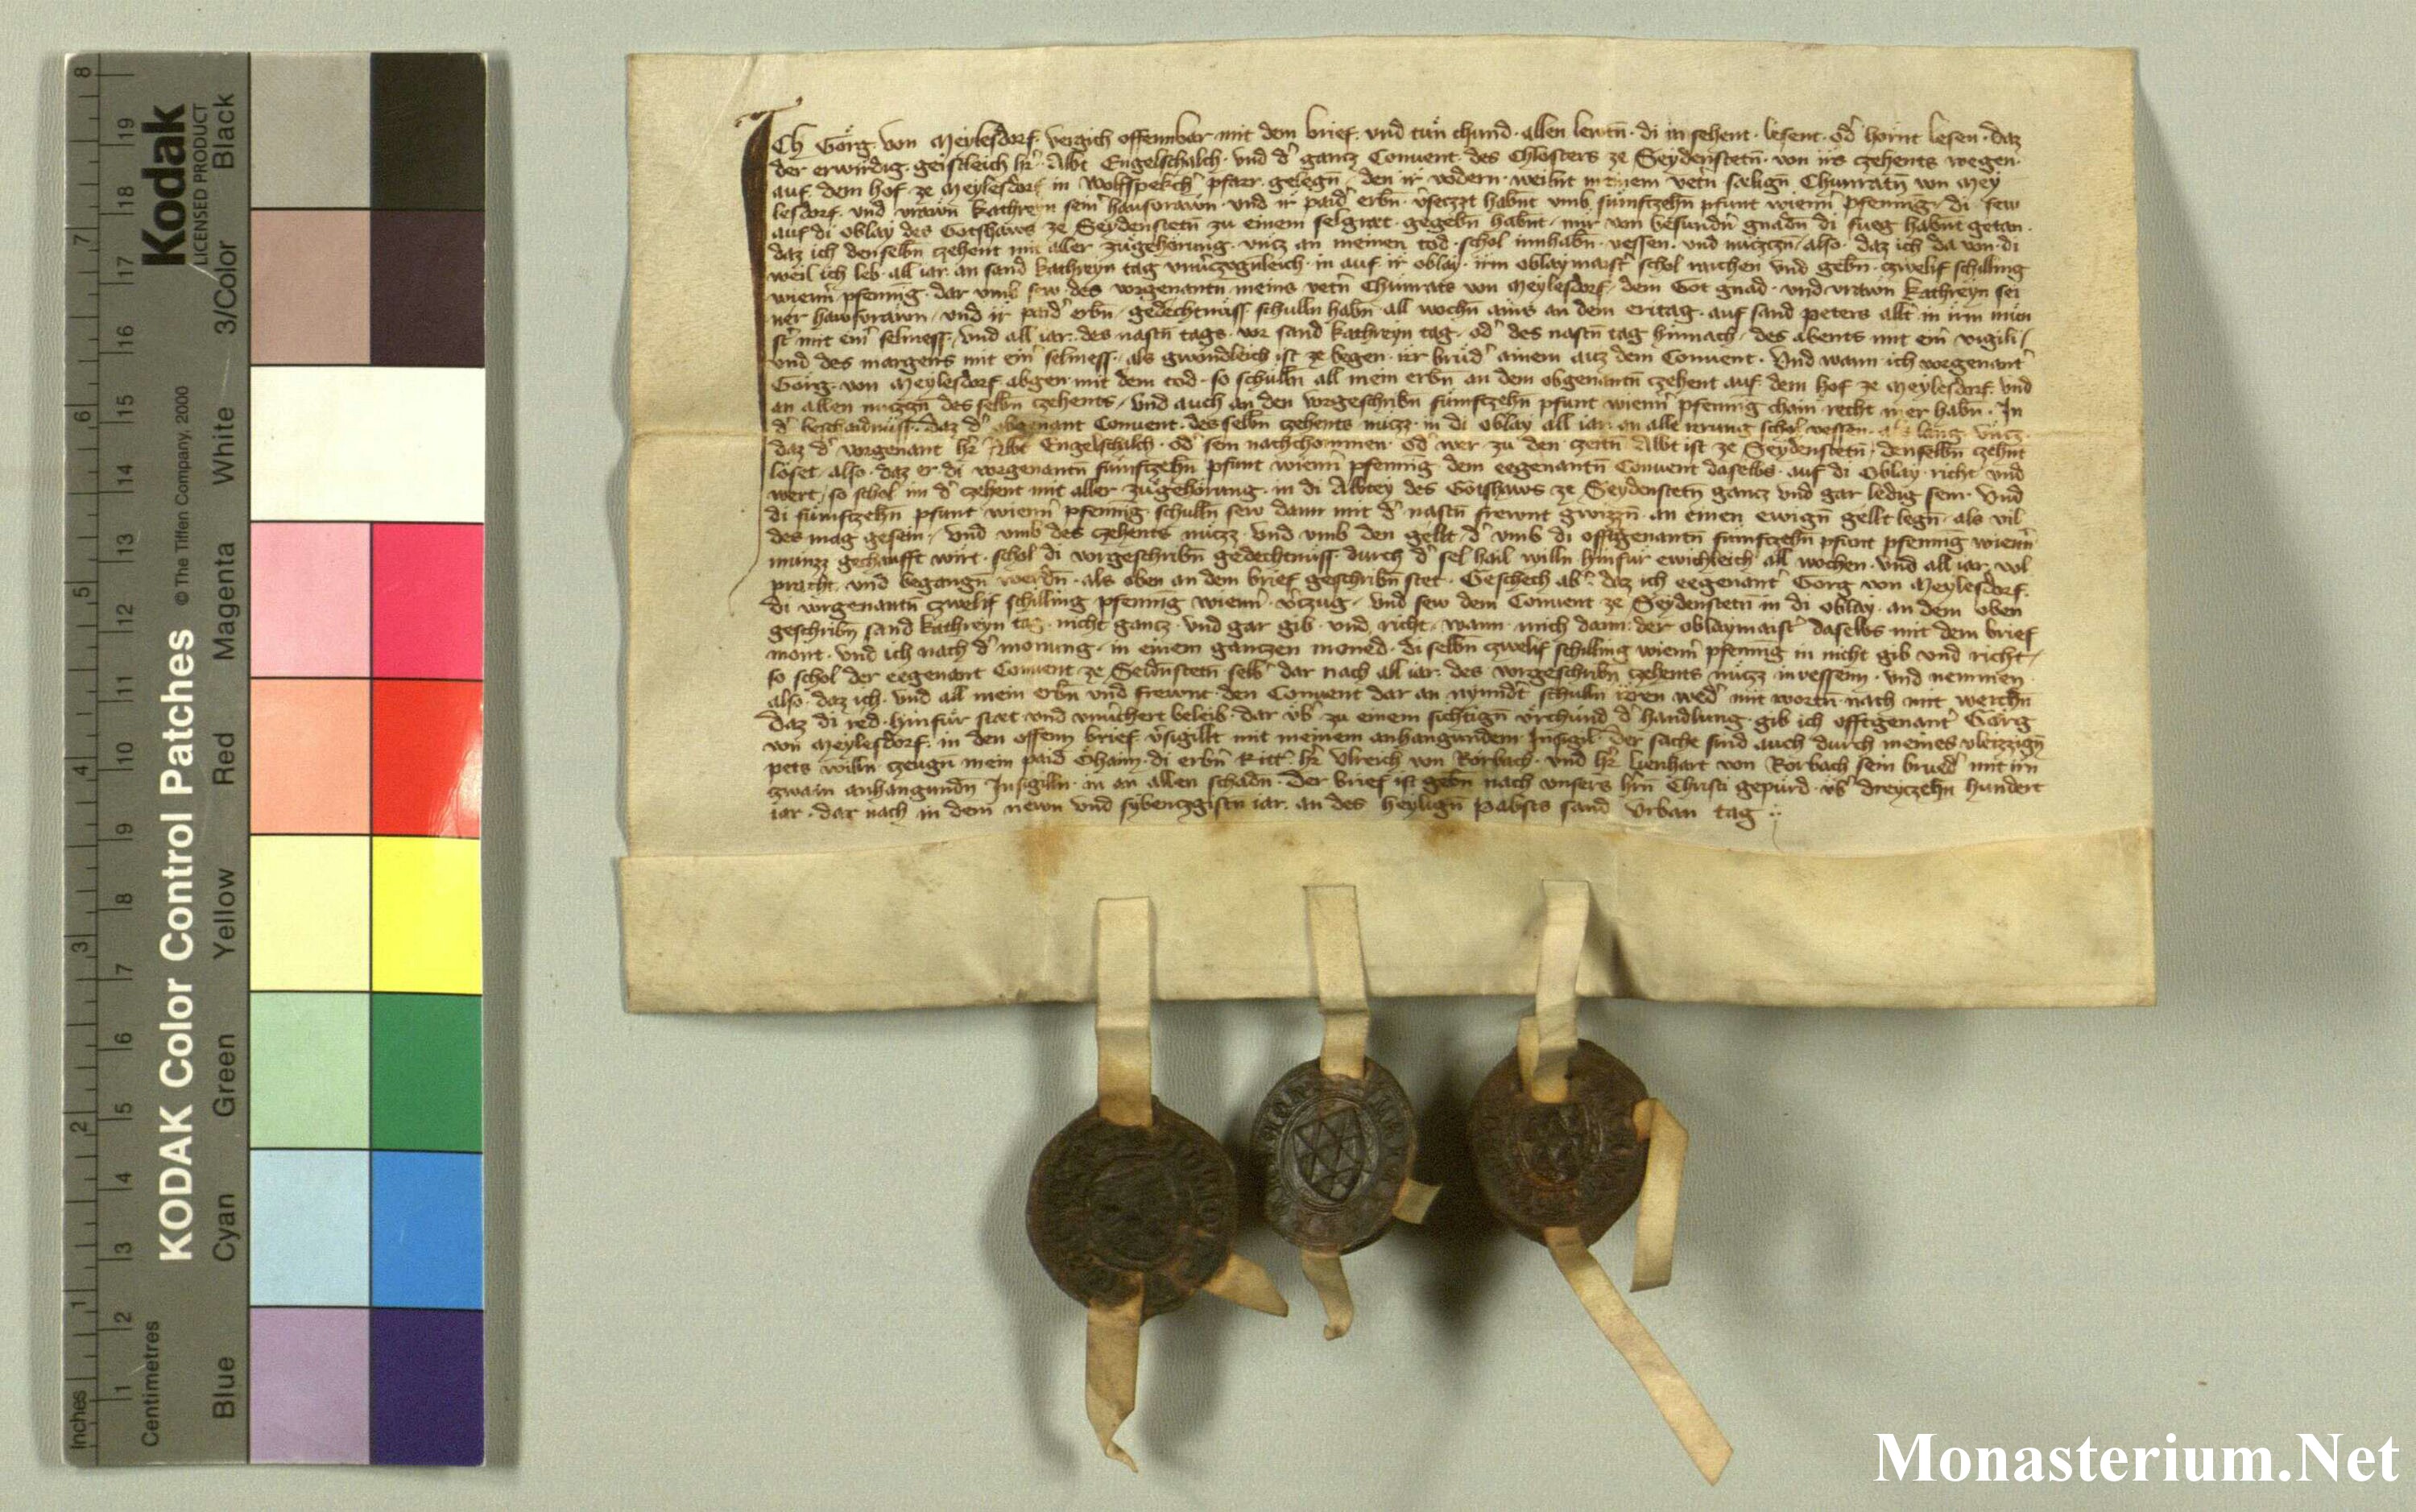 Kodak
LICENSED PRODUCT
KODAK Color Control Patches
© The Tiffen Company, 2000
Black
3/Color
White
Magenta
Red
Yellow
Green
Cyan
Blue
Inches
1 2 3 4 5 6 7 8
Centimetres
1 2 3 4 5 6 7 8 9 10 11 12 13 14 15 16 17 18 19
Ich Görg von Meylesdorf vergich offennbar mit dem brief vnd tün chund allen lewtn̄ di in sehent lesent od' hörnt lesen daz
der erwirdig geistleich hr̄ Abbt Engelschalch vnd d' gancz Conuent des Chlosters ze Seydenstetn̄ von irs czehents wegen
auf dem hof ze Meylesdorf in Wolfspekch' pfarr gelegn̄ den ir vodern weilnt meinem vetn̄ sælign̄ Chunratn̄ von Mey
lesdorf vnd vrawn Kathreyn sein' hausvrawn vnd ir paid' erbn̄ v'seczzt habnt vmb fümftzehn pfunt wienn' pfenning di sew
auf di oblay des Gotshaws ze Seydenstetn̄ zu einem selgræt gegebn̄ habnt mir von besundn̄ gnadn̄ di fueg habnt getan
daz ich denselbn̄ czehent mit aller zügehörung vncz an meinen tod schol innhabn̄ vessen vnd nüczczn̄ also daz ich da von di
weil ich leb all iar an sand Kathreyn tag vnu'czogn̄leich in auf ir oblay irm oblaymaist' schol raichen vnd gebn̄ czwelif schilling
wienn' pfenning dar vmb sew des vorgenantn̄ meins vetn̄ Chunrats von Meylesdorf dem Got gnad vnd vrawn Kathreyn sei
ner hawsvrawn vnd ir paid' erbn̄ gedechtnüss schulln habn̄ all wochn̄ ains an dem eritag auf sand peters allt' in irm mün
st' mit ein' selmess vnd all iar des nastn̄ tags vor sand Kathreyn tag od' des nastn̄ tag hinnach des abents mit ein' vigili
vnd des margens mit ein' selmess als gwöndleich ist ze begen irr brüd' ainem auz dem Conuent Vnd wann ich vorgenant'
Görg von Meylesdorf abgen mit dem tod so schülln̄ all mein erbn̄ an dem obgenantn̄ czehent auf dem hof ze Meylesdorf vnd
an allen nüczczn̄ desselbn̄ czehents vnd auch an den vorgeschribn̄ fümftzehn̄ pfunt wienn' pfenning chain recht mer habn̄ In
d' beschaidnüss daz d' obgenant Conuent desselbn̄ czehents nücz in di oblay all iar an alle irrung schol vessen als lang vncz
daz d' vorgenant hr̄ Abbt Engelschalch od' sein nachchömmen od' wer zu den czeitn̄ Abbt ist ze Seydenstetn̄ denselbn̄ czehnt
löset also daz er di vorgenantn̄ fümftzehn̄ pfunt wienn' pfenning dem eegenantn̄ Conuent daselbs auf di Oblay richt vnd
wert so schol im d' czehent mit aller zügehörung in di Abbtey des Gotshaws ze Seydenstetn̄ gancz vnd gar ledig sein Vnd
di fümftzehn̄ pfunt wienn' pfenning schulln̄ sew dann mit d' nastn̄ frewnt gwizzn̄ an einen ewign̄ gellt legn̄ als vil
des mag gesein vnd vmb des czehents nücz vnd vmb den gellt d' vmb di offtgenantn̄ fümftzehn̄ pfunt pfenning wienn'
münzz gechaufft wirt schol di vorgeschribn̄ gedechtnüss durch d' sel hail willn̄ hinfür ewichleich all wochen vnd all iar vol
pracht vnd begangn̄ werdn̄ als oben an dem brief geschribn̄ stet Geschech ab' daz ich eegenant' Görg von Meylesdorf
di vorgenantn̄ czwelif schilling pfenning wienn' v'czug vnd sew dem Conuent ze Seydenstetn̄ in di oblay an dem oben
geschribn̄ sand Kathreyn tag nicht gancz vnd gar gib vnd richt wann mich dann der oblaymaist' daselbs mit dem brief
mönt vnd ich nach d' monung in einem ganczen moned di selbn̄ czwelif schilling wienn' pfenning in nicht gib vnd richt
so schol der eegenant Conuent ze Seidnstetn̄ selb' dar nach all iar des vorgeschribn̄ czehents nücz invessenn vnd nemmen
also daz ich vnd all mein erbn̄ vnd frewnt den Conuent dar an nyndert schulln̄ irren wed' mit wortn̄ nach mit werchn̄
Daz di red hinfür stæt vnd vnu'chert beleib dar vb' zu einem sichtign̄ vrchünd d' handlung gib ich offtgenant' Görg
von Meylesdorf in den offenn brief v'sigillt mit meinem anhangundem Insigil der sache sind auch durch meines vleizzign̄
pets willn̄ czeugn̄ mein paid Öhaim di erbn̄ Ritt' hr̄ Vlreich von Rorbach vnd hr̄ Lienhart von Rorbach sein brued' mit irn
zwain anhangundn̄ Insigilln in an allen schadn̄ Der brief ist gebn̄ nach vnsers hrn̄ Christi gepürd vb' dreyczehn hundert
iar dar nach in dem newn vnd sybenczgistn̄ iar an des heylign̄ pabsts sand Vrban tag
Monasterium.Net